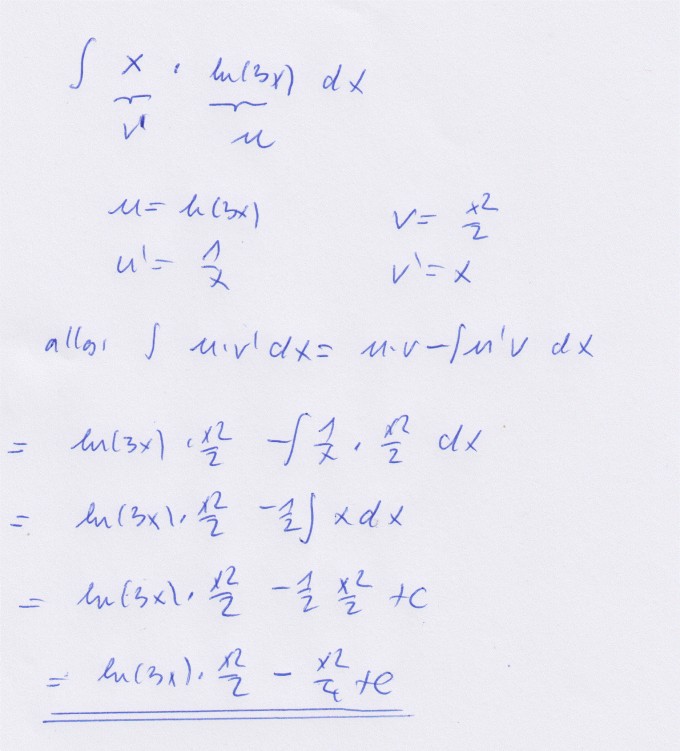 ∫ x · ln(3x) dx
v' u
u = ln(3x) v = x²/2
u' = 1/x v' = x
allg: ∫ u·v' dx = u·v - ∫ u'v dx
= ln(3x) · x²/2 - ∫ 1/x · x²/2 dx
= ln(3x) · x²/2 - 1/2 ∫ x dx
= ln(3x) · x²/2 - 1/2 x²/2 + C
= ln(3x) · x²/2 - x²/4 + C